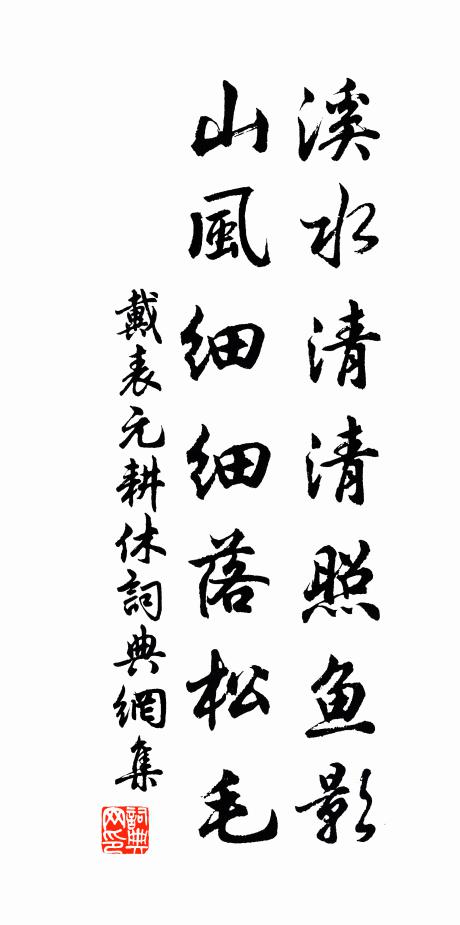 溪水清清照鱼影
山風细细落松毛
戴表元耕休詞典網集
詞典网印